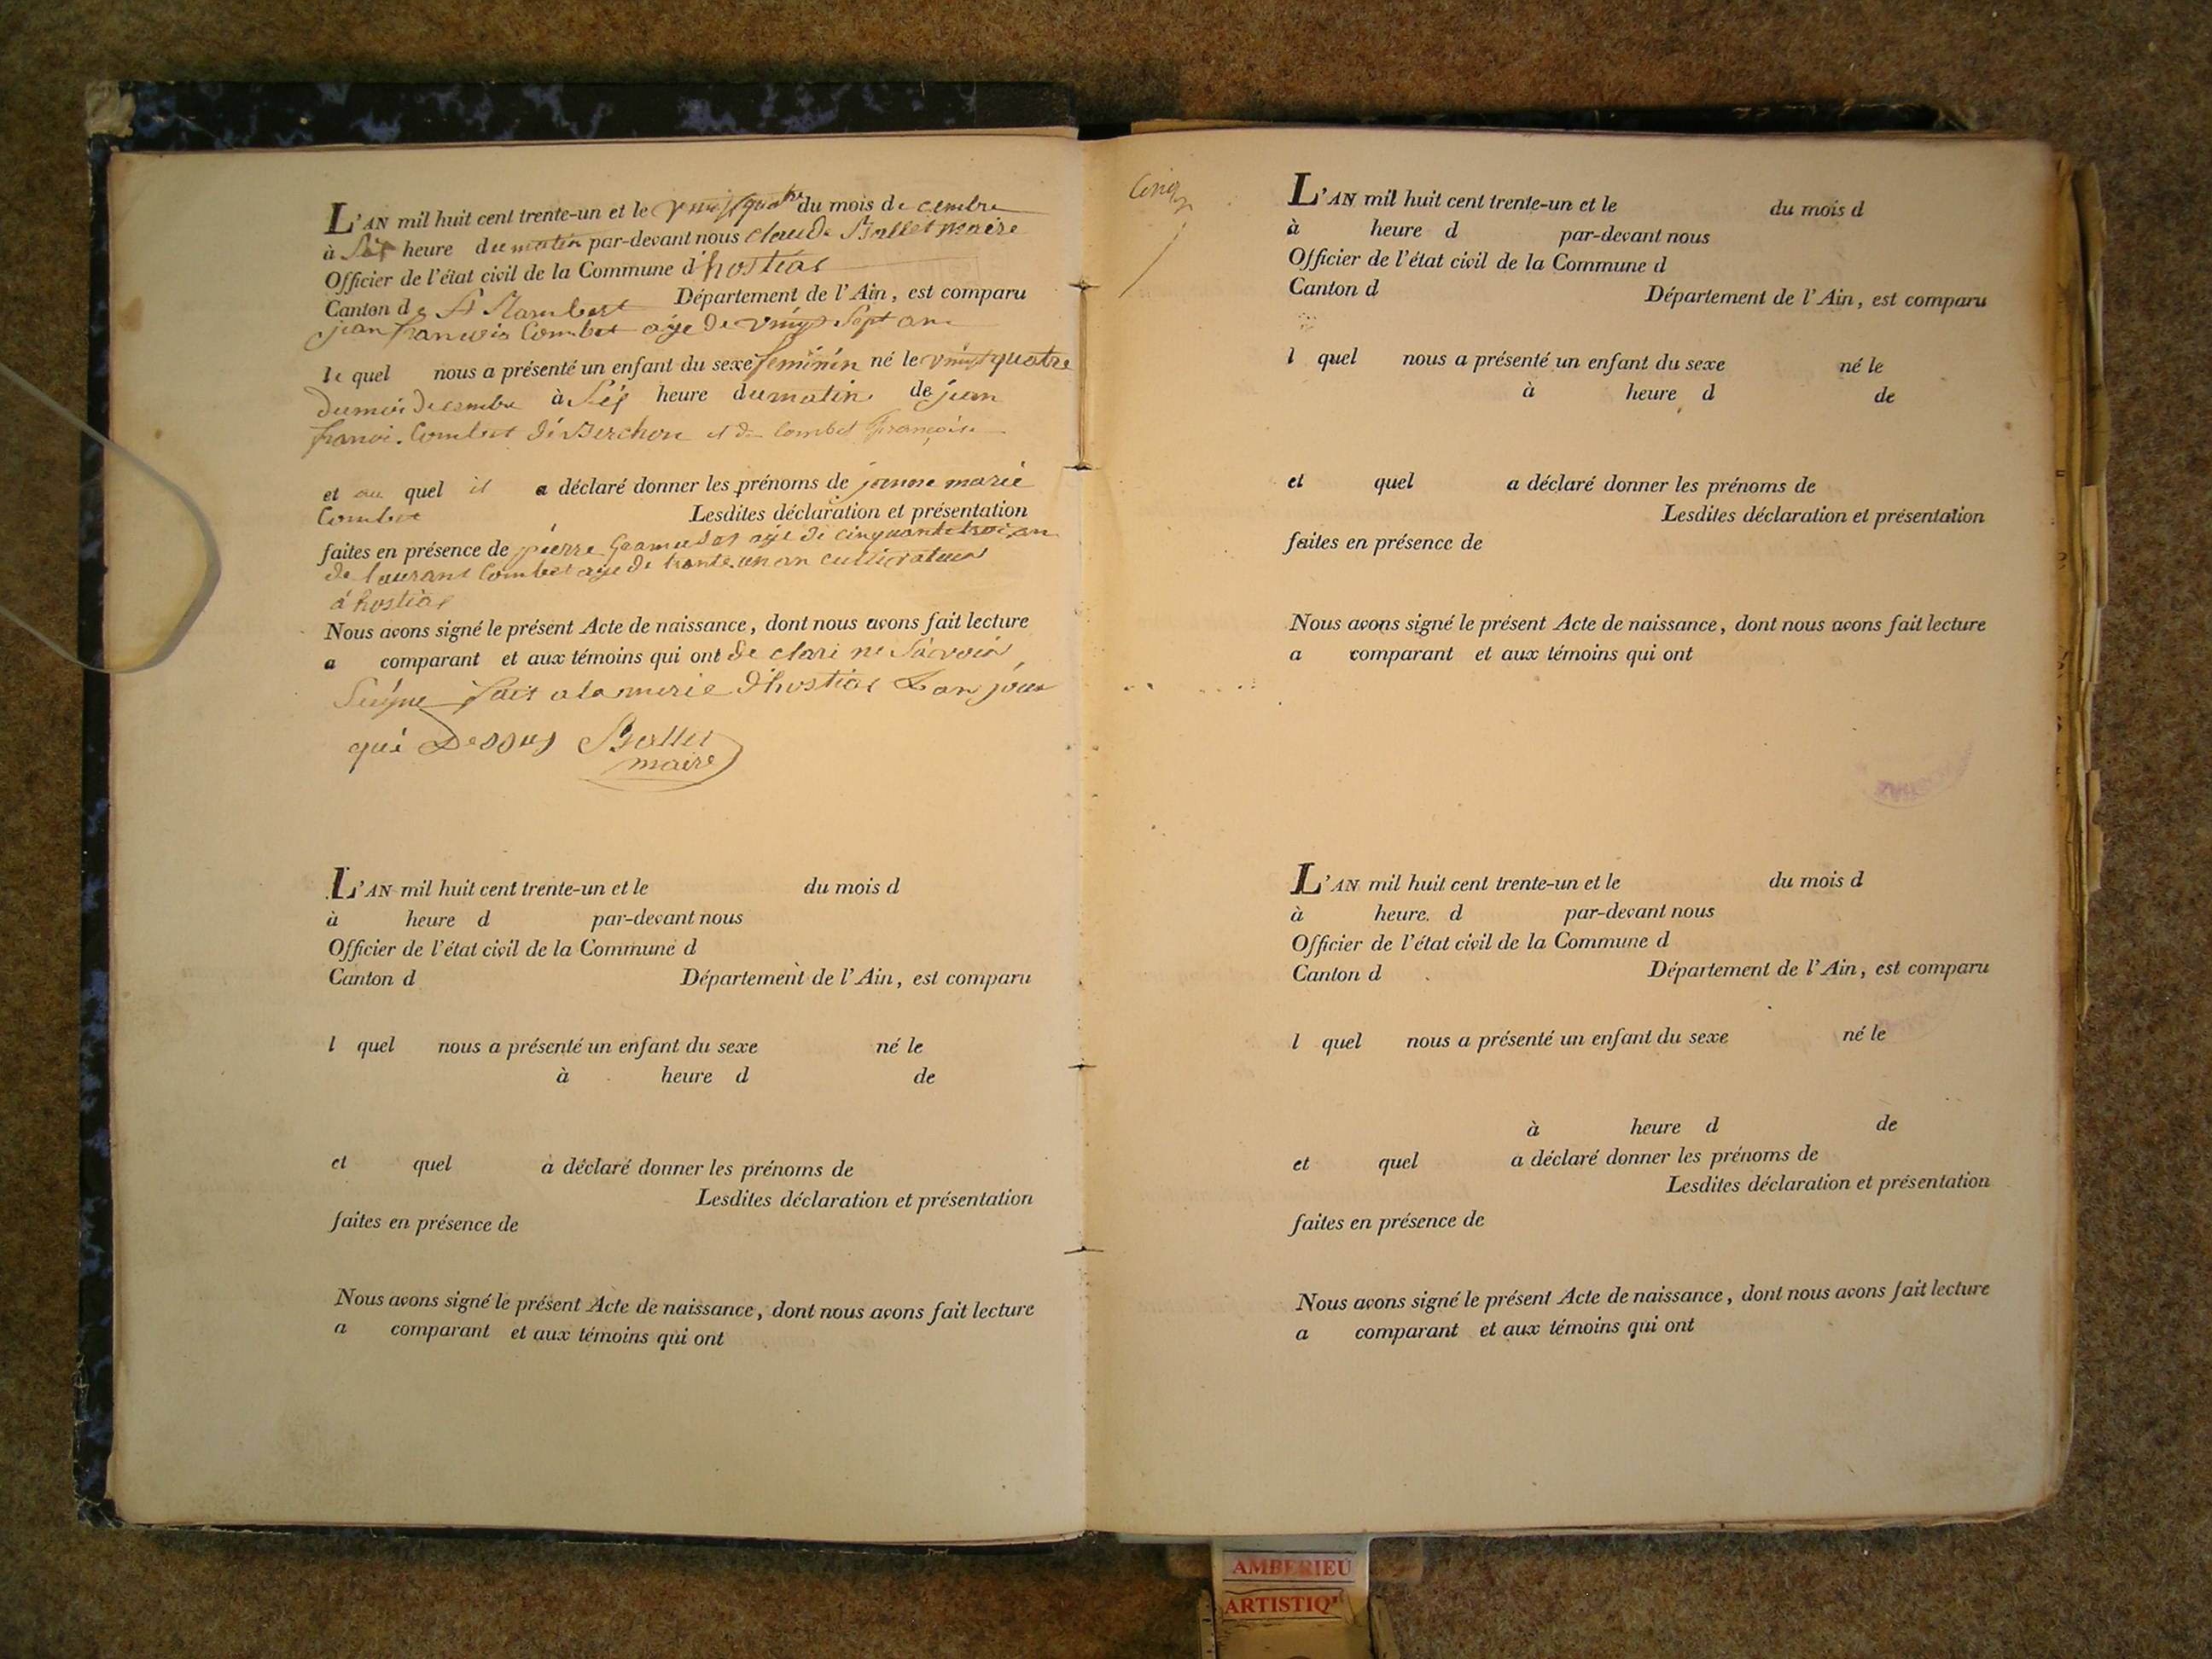 L'AN mil huit cent trente-un et le vingt quatre du mois de cembre
à Sis heure du matin par-devant nous claude Ballet maire
Officier de l'état civil de la Commune d'hostias
Canton de St Rambert Département de l'Ain, est comparu
jean francois Combet age de vingt Sept an
le quel nous a présenté un enfant du sexe feminin né le vingt quatre
du moi decembre à Sis heure du matin de jean
franci. Combet dit Berchon et de Combet françoise
et au quel il a déclaré donner les prénoms de janne marie
Combet Lesdites déclaration et présentation
faites en présence de pierre age de cinquante troi an
de laurant Combet age de trante un an cultivateur
a hostias
Nous avons signé le présent Acte de naissance, dont nous avons fait lecture
a comparant et aux témoins qui ont de clari ne Savoir
Seigne fait a la merie d'hostias L'an jour
que Dessus Ballet
maire
L'AN mil huit cent trente-un et le du mois d
à heure d par-devant nous
Officier de l'état civil de la Commune d
Canton d Département de l'Ain, est comparu
l quel nous a présenté un enfant du sexe né le
à heure d de
et quel a déclaré donner les prénoms de
Lesdites déclaration et présentation
faites en présence de
Nous avons signé le présent Acte de naissance, dont nous avons fait lecture
a comparant et aux témoins qui ont
Cinq
L'AN mil huit cent trente-un et le du mois d
à heure d par-devant nous
Officier de l'état civil de la Commune d
Canton d Département de l'Ain, est comparu
l quel nous a présenté un enfant du sexe né le
à heure d de
et quel a déclaré donner les prénoms de
Lesdites déclaration et présentation
faites en présence de
Nous avons signé le présent Acte de naissance, dont nous avons fait lecture
a comparant et aux témoins qui ont
L'AN mil huit cent trente-un et le du mois d
à heure. d par-devant nous
Officier de l'état civil de la Commune d
Canton d Département de l'Ain, est comparu
l quel nous a présenté un enfant du sexe né le
à heure d de
et quel a déclaré donner les prénoms de
Lesdites déclaration et présentation
faites en présence de
Nous avons signé le présent Acte de naissance, dont nous avons fait lecture
a comparant et aux témoins qui ont
AMBERIEU
ARTISTIQ